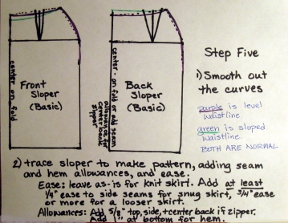 Step Five
1) Smooth out
the curves
purple is level
waistline
green is sloped
waistline.
BOTH ARE NORMAL
center on fold
Front
Sloper
(Basic)
center - on fold and seam
allowance for
center back
zipper
Back
Sloper
(Basic)
2) trace sloper to make pattern, adding seam
and hem allowances, and ease.
Ease: leave as-is for knit skirt. Add at least
1/4" ease to side seams for snug skirt, 3/4" ease
or more for a looser skirt.
Allowances: Add 5/8" top, side, + center back if zipper.
Add 1" at bottom for hem.